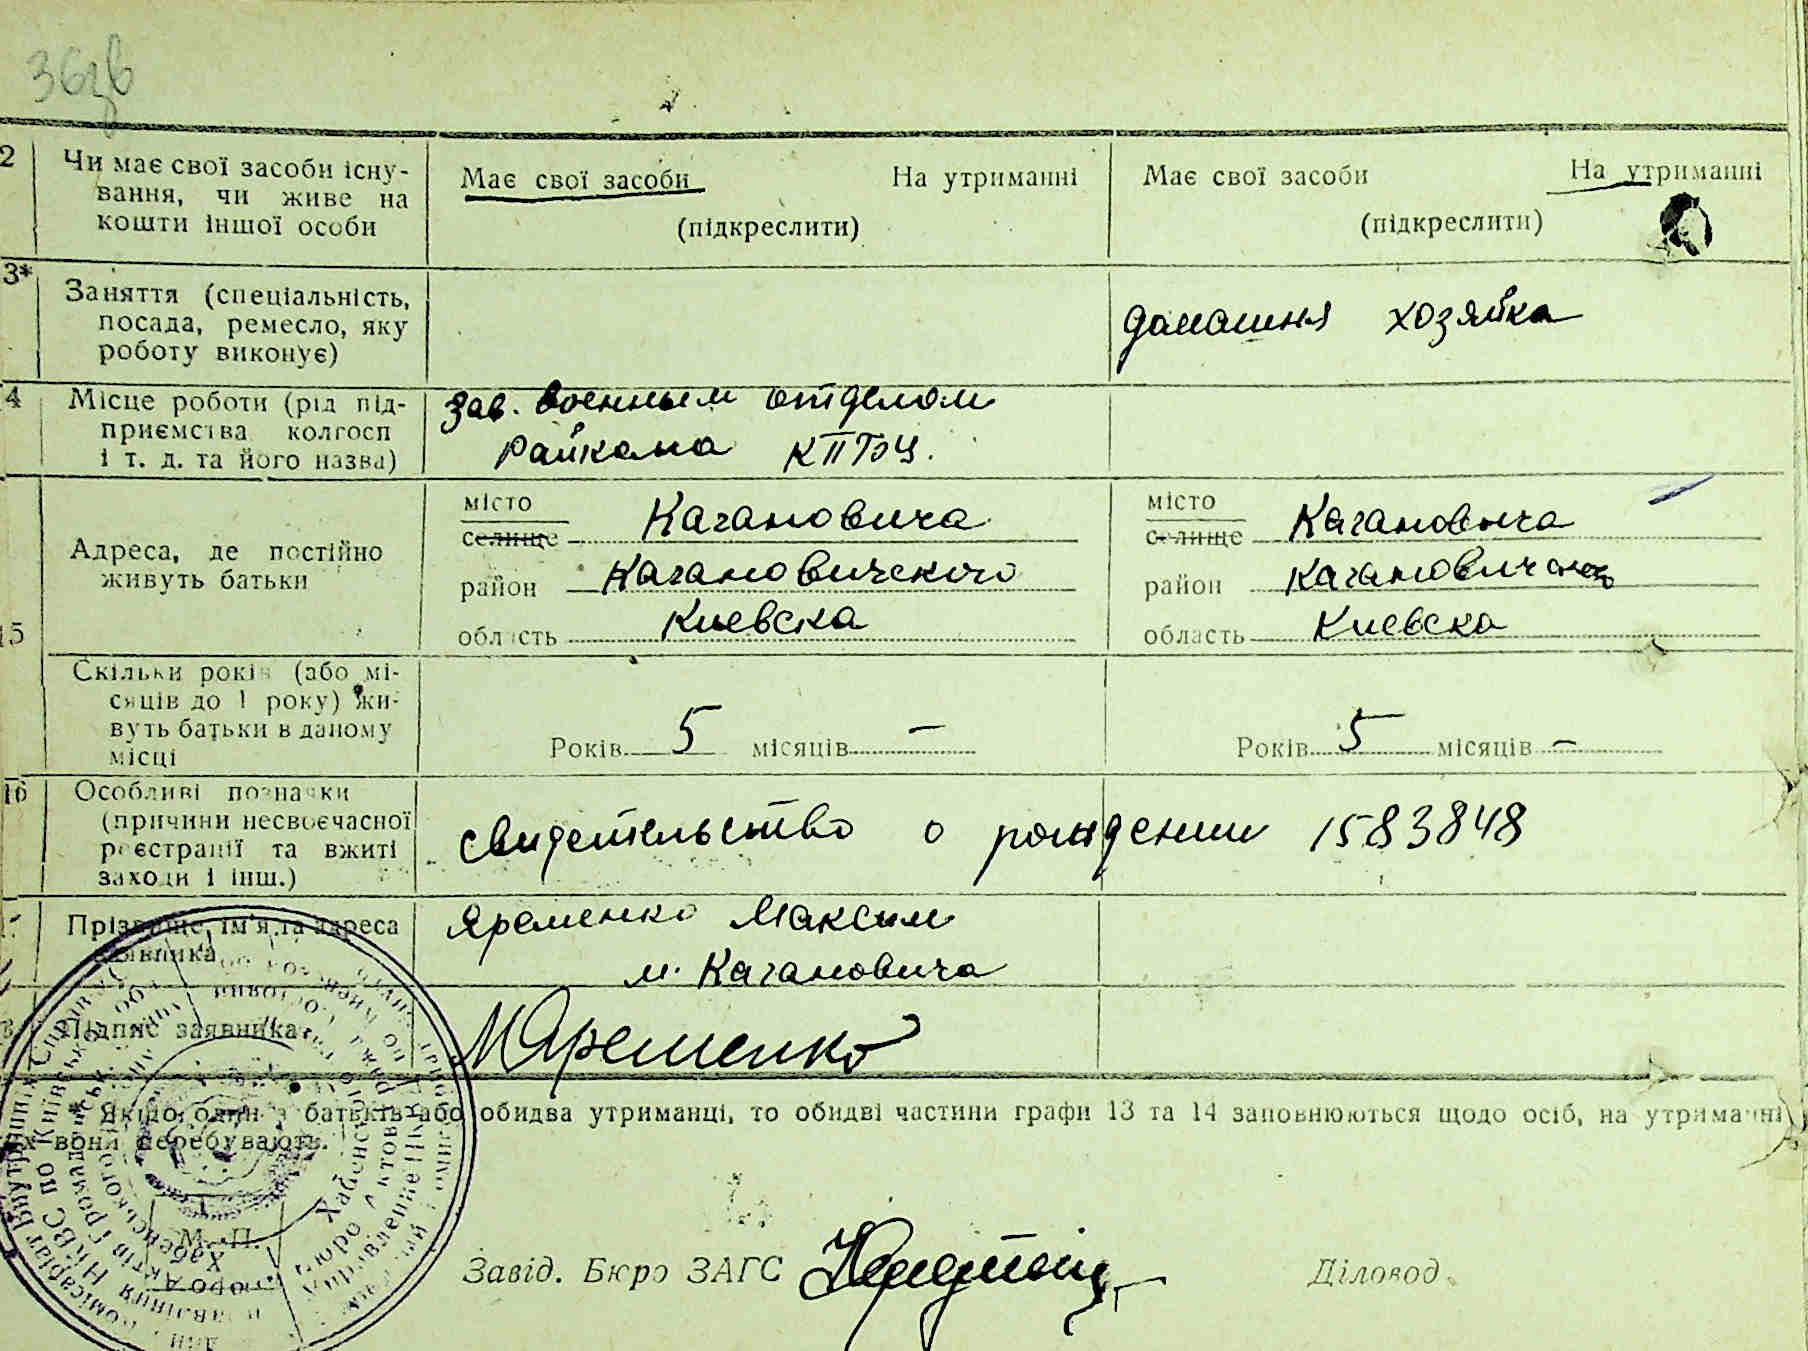 36зв
2 Чи має свої засоби існу- Має свої засоби На утриманні Має свої засоби На утриманні
вання, чи живе на
кошти іншої особи (підкреслити) (підкреслити)
3* Заняття (спеціальність,
посада, ремесло, яку домашня хозяйка
роботу виконує)
4 Місце роботи (рід під- Зав. военным отделом
приємства колгосп Райкома КПбУ.
і т. д. та його назва)
місто Кагановича місто Кагановича
селище селище
Адреса, де постійно
живуть батьки район Кагановичского район
15 область Киевска область Киевска
Скільки років (або мі-
сяців до 1 року) жи-
вуть батьки в даному Років 5 місяців – Років 5 місяців –
місці
16 Особливі позначки
(причини несвоєчасної свидетельство о рождении 1583848
реєстрації та вжиті
заходи і інш.)
Прізвище, ім'я та адреса Яременко Максим
заявника м. Кагановича
Підпис заявника МЯременко
Якщо один з батьків або обидва утриманці, то обидві частини графи 13 та 14 заповнюються щодо осіб, на утриманні
їх вони перебувають.
М. П.
Завід. Бюро ЗАГС Діловод